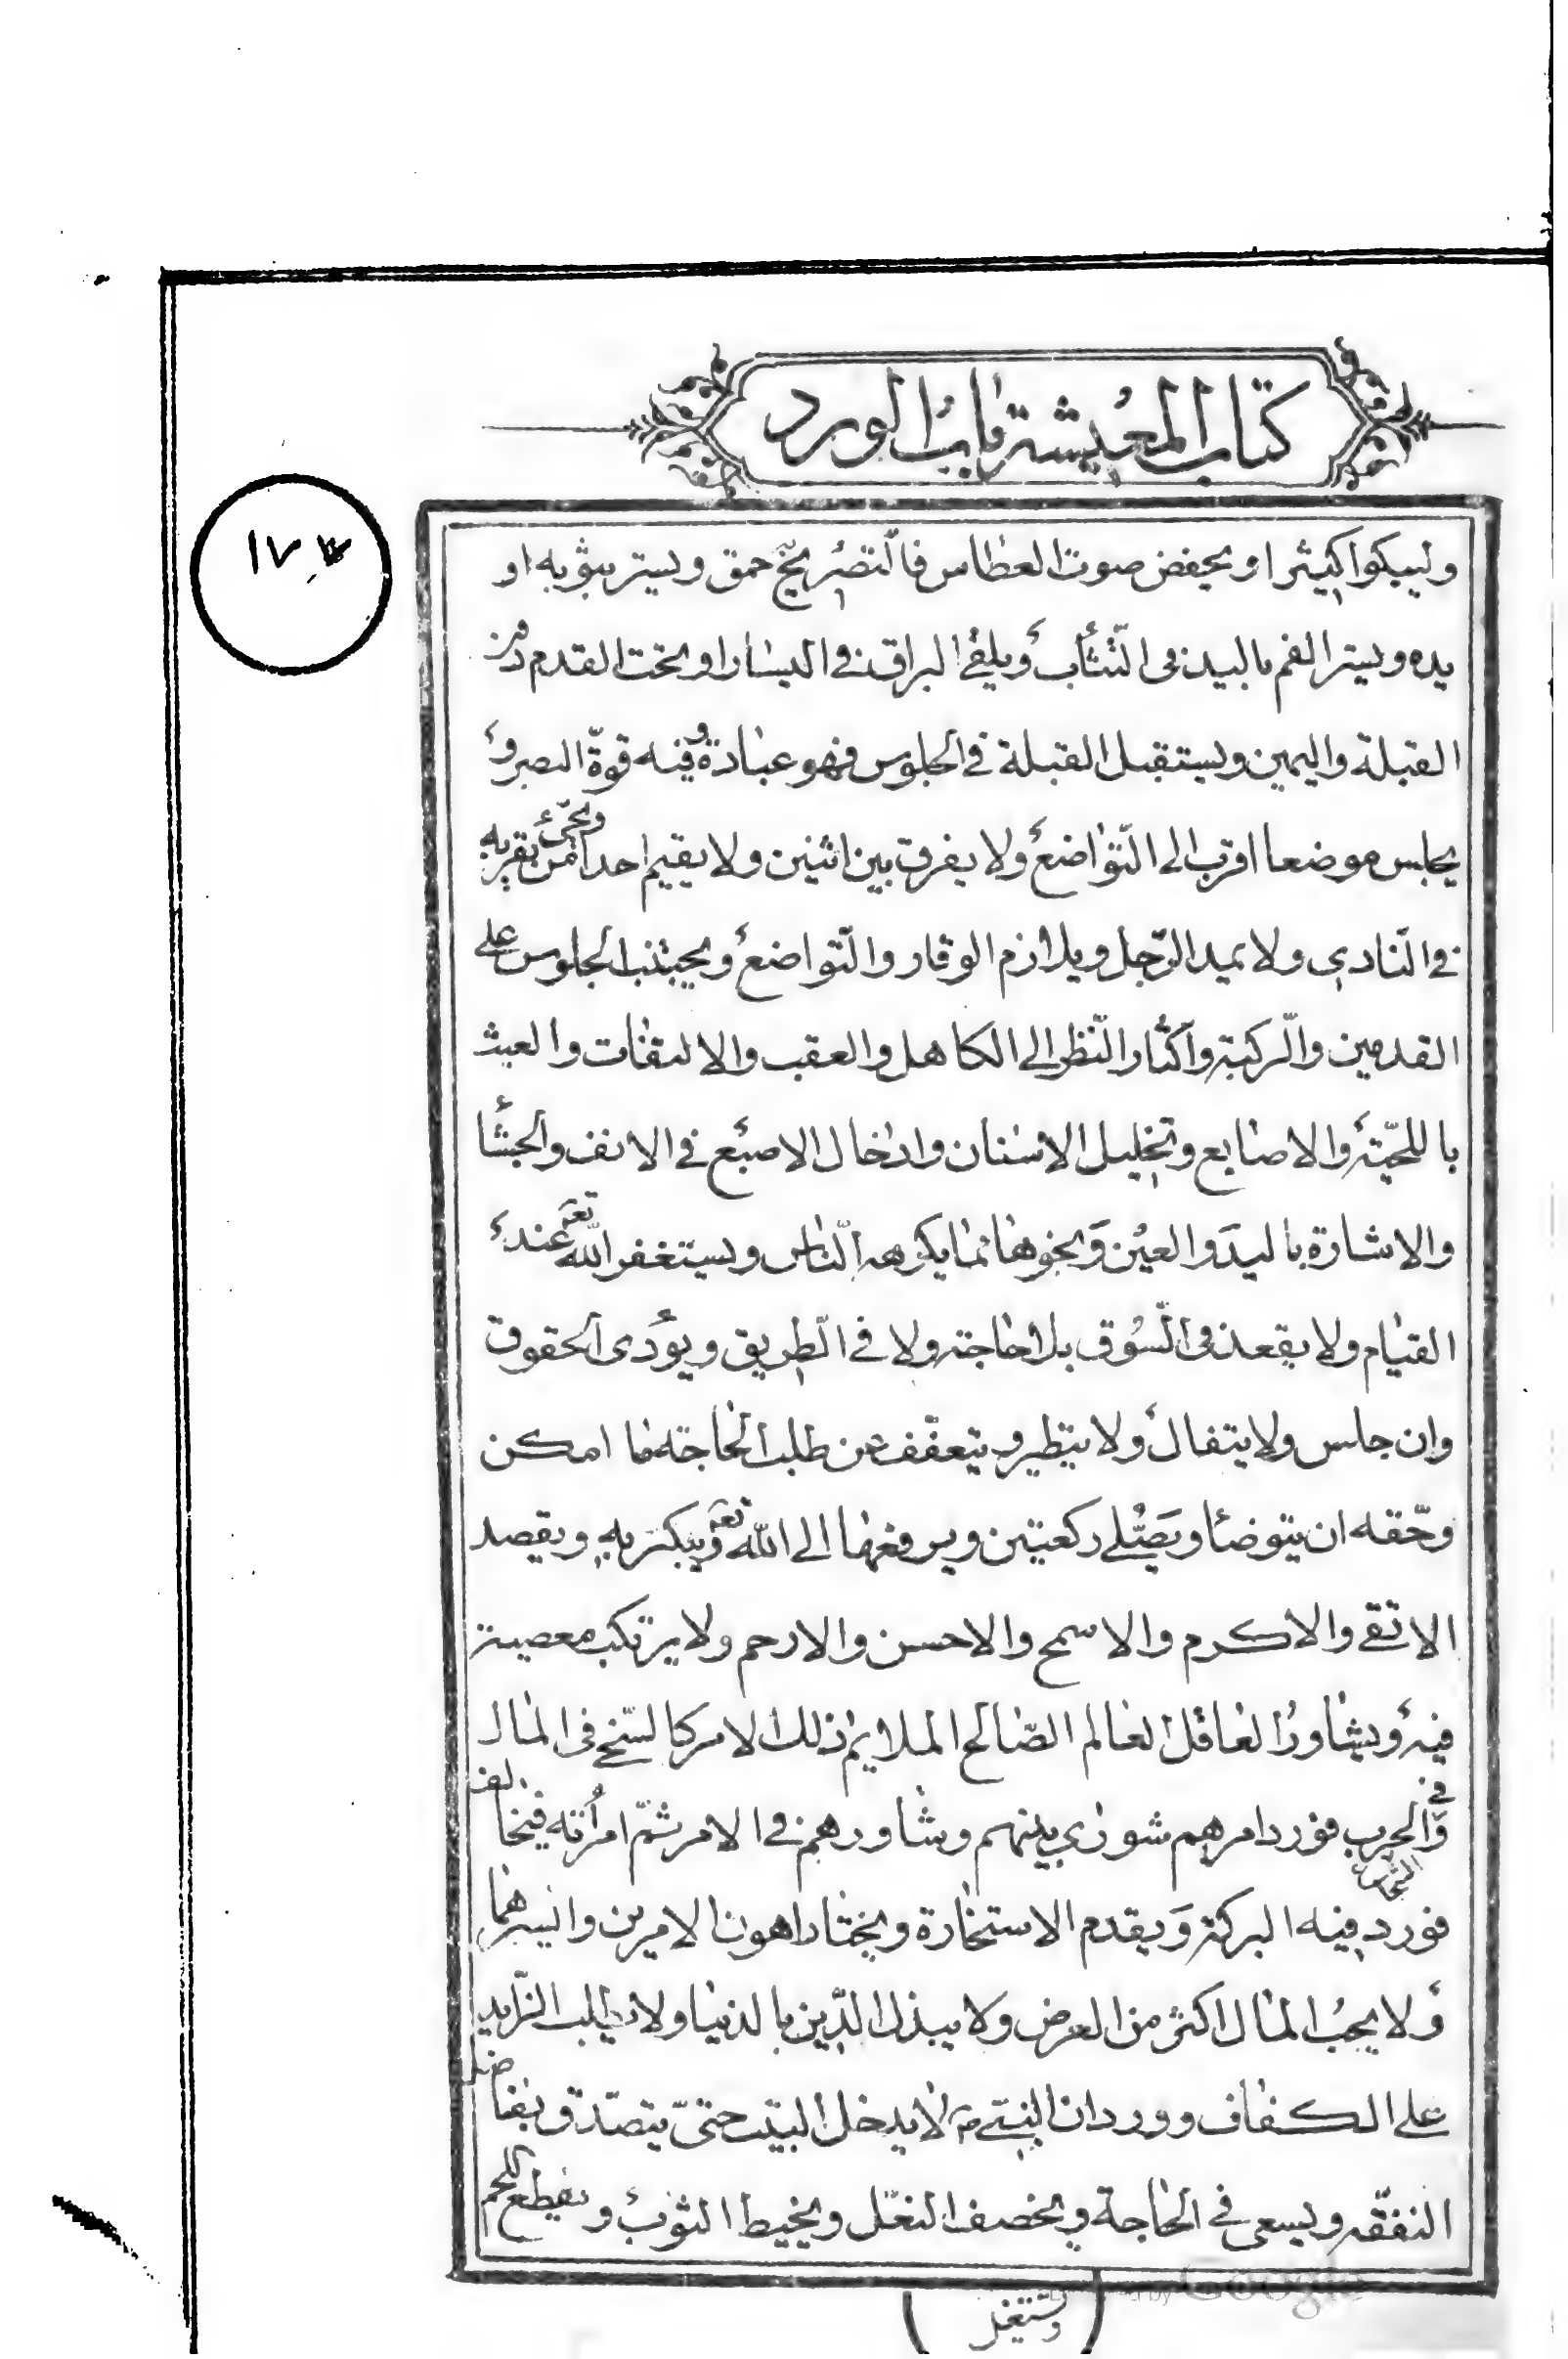 كتاب المعيشة باب الورد
١٧٣
وليبكوا كثيرا ويخفض صوت العطاس فالتصريح حمق ويستر بثوبه او
يده ويستر الفم باليد في التثأب ويلقى البزاق في اليسار او تحت القدم دون
القبلة واليمين ويستقبل القبلة في الجلوس فهو عبادة وفيه قوة البصر و
يجلس موضعا اقرب الى التواضع ولا يفرق بين اثنين ولا يقيم احدا من يقربه
في النادي ولا يمد الرجل ويلازم الوقار والتواضع ويجتنب الجلوس على
القدمين والركبة واكثار النظر الى الكاهل والعقب والالتفات والعبث
باللحية والاصابع وتخليل الاسنان وادخال الاصبع في الانف والجشأ
والاشارة باليد والعين ونحوها مما يكرهه الناس ويستغفر الله تع عند
القيام ولا يقعد في السوق بلا حاجة ولا في الطريق ويؤدى الحقوق
وان جلس ولا يتفال ولا يتطير ويتعفف عن طلب الحاجة ما امكن
وحقه ان يتوضأ ويصلى ركعتين ويرفعها الى الله تع ويبكر به ويقصد
الاتقى والاكرم والاسمح والاحسن والارحم ولا يرتكب معصية
فيه ويشاور العاقل العالم الصالح الملايم ذلك الامر كالسخى في المال
والشجاع في الحرب فورد امرهم شورى بينهم وشاورهم في الامر ثم امرأته فيخالف
فورد فيه البركة ويقدم الاستخارة ويختار اهون الامرين وايسرهما
ولا يحب المال اكثر من العرض ولا يبذل الدين بالدنيا ولا يطلب الزايد
على الكفاف وورد ان النبى ص لا يدخل البيت حتى يتصدق بفاضل
النفقه ويسعى في الحاجة ويخصف النعل ويخيط الثوب ويقطع اللحم
Google